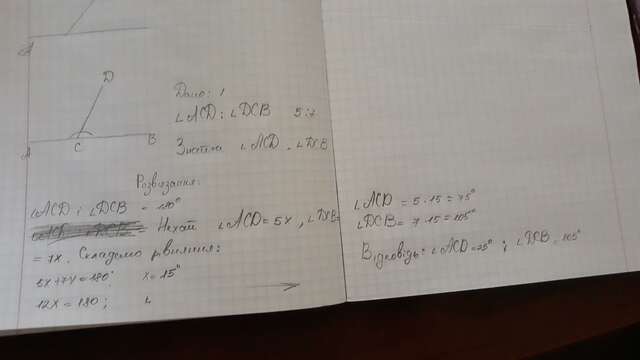 D
A C B
Дано:
∠ACD : ∠DCB 5:7
Знайти ∠ACD - ∠DCB
Розвязання:
∠ACD ; ∠DCB = 180°
Нехай ∠ACD = 5x, ∠DCB=
= 7x. Складемо рівняння:
5x+7x=180; x=15°
12x=180;
∠ACD = 5·15=75°
∠DCB= 7·15=105°
Відповідь: ∠ACD=75° ; ∠DCB=105°